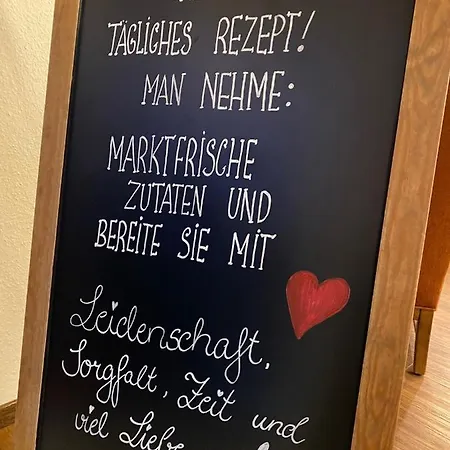 TÄGLICHES REZEPT!
MAN NEHME:
MARKTFRISCHE
ZUTATEN UND
BEREITE SIE MIT
Leidenschaft,
Sorgfalt, Zeit und
viel Liebe